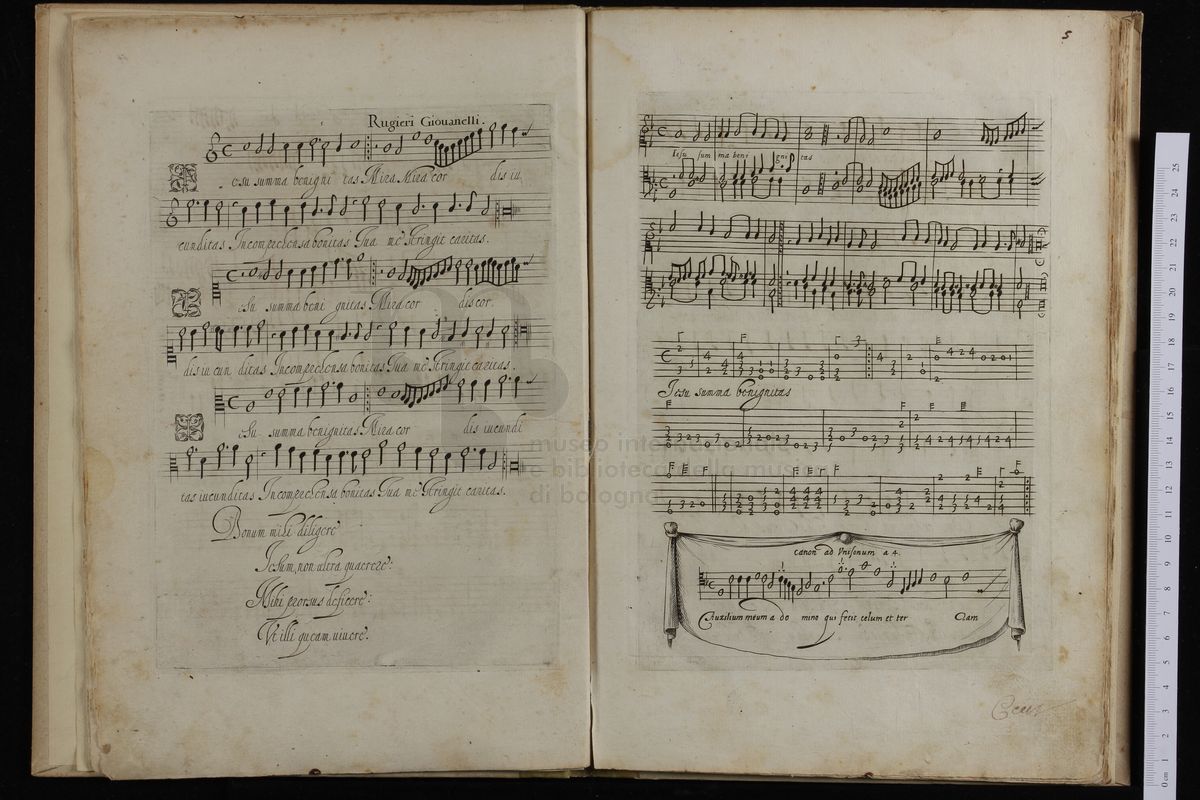 Rugieri Giouanelli.
esu summa benigni tas Mira Mira cor dis iu
cunditas Incomprehensa bonitas Tua me Stringit caritas.
esu summa beni gnitas Mira cor dis cor.
dis iu cun ditas Incomprehensa bonitas Tua me Stringit caritas.
esu summa benignitas Mira cor dis iucundi
tas iucunditas Incomprehensa bonitas Tua me Stringit caritas.
Bonum mihi diligere
Iesum, non ultra quaerere:
Mihi prorsus deficere:
Vt illi queam uiuere.
5
Iesu sum ma beni gni tas
Iesu summa benignitas
canon ad Vnisonum a 4.
Auxilium meum a do mino qui fecit celum et ter Ram
museo internazionale
e biblioteca della musica
di bologna